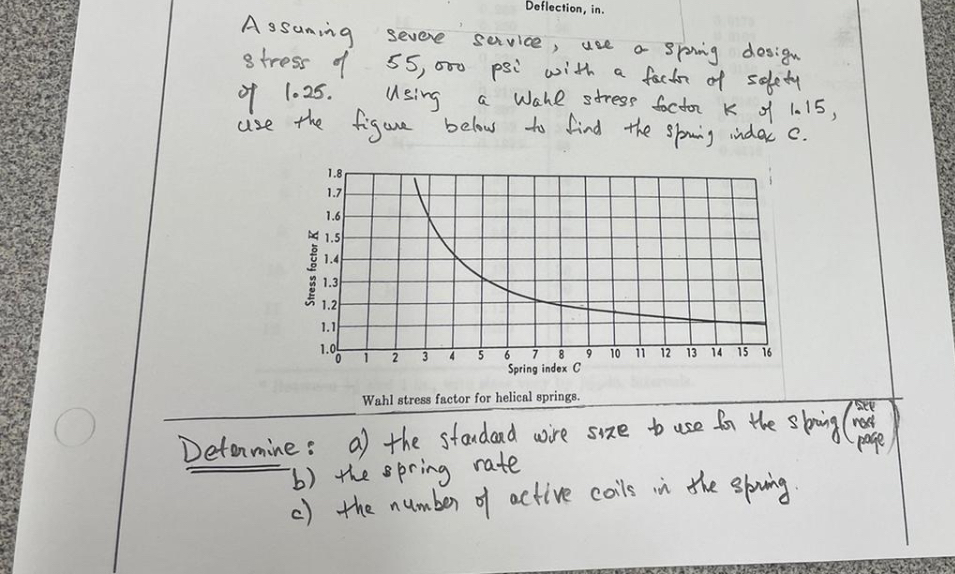 Deflection, in.
Assuming severe service, use a spring design
stress of 55,000 psi with a factor of safety
of 1.25. Using a Wahl stress factor K of 1.15,
use the figure below to find the spring index C.
1.8
1.7
1.6
1.5
1.4
1.3
1.2
1.1
1.0
Stress factor K
0 1 2 3 4 5 6 7 8 9 10 11 12 13 14 15 16
Spring index C
Wahl stress factor for helical springs.
Determine: a) the standard wire size to use for the spring (see next page)
b) the spring rate
c) the number of active coils in the spring.